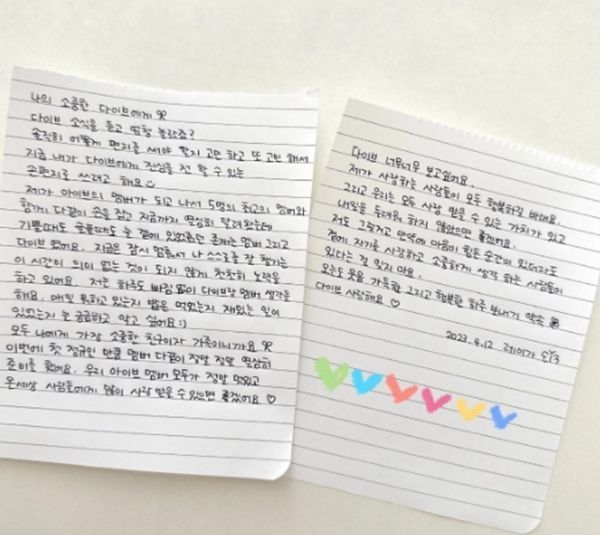 나의 소중한 다이브에게
다이브 소식을 듣고 엄청 놀랐죠?
솔직히 어떻게 편지를 써야 할지 고민 하고 또 고민 해서
지금 내가 다이브에게 진심을 전 할 수 있는
손편지를 쓰려고 해요
제가 아이브의 멤버가 되고 나서 5명의 최고의 멤버와
함께 다같이 손을 잡고 지금까지 열심히 달려왔는데
기쁠때도 슬플때도 늘 곁에 있었던 존재는 멤버 그리고
다이브 였어요. 지금은 잠시 멈춰서 나 스스로를 잘 챙기는
이 시간이 의미 없는 것이 되지 않게 천천히 노력을
하고 있어요. 저는 하루도 빠짐 없이 다이브랑 멤버 생각을
해요. 매일 뭐하고 있는지 밥은 먹었는지 재밌는 일이
있었는지 늘 궁금하고 알고 싶어요 :)
모두 나에게 가장 소중한 친구이자 가족이니까요
이번에 첫 정규인 만큼 멤버 다같이 정말 정말 열심히
준비를 했어요. 우리 아이브 멤버 모두가 정말 멋있고
온세상 사람들에게 많이 사랑 받을 수 있으면 좋겠어요 ♡
다이브 너무너무 보고싶어요.
제가 사랑하는 사람들이 모두 행복하길 바래요.
그리고 우리는 모두 사랑 받을 수 있는 가치가 있고
내일을 두려워 하지 않았으면 좋겠어요.
저도 그렇지고 만약에 마음이 힘든 순간이 있더라도
곁에 자기를 사랑하고 소중하게 생각 하는 사람들이
있다는 걸 잊지 마요.
오늘도 웃음 가득한 그리고 행복한 하루 보내기 약속
다이브 사랑해요 ♡
2023. 4. 12 레이가